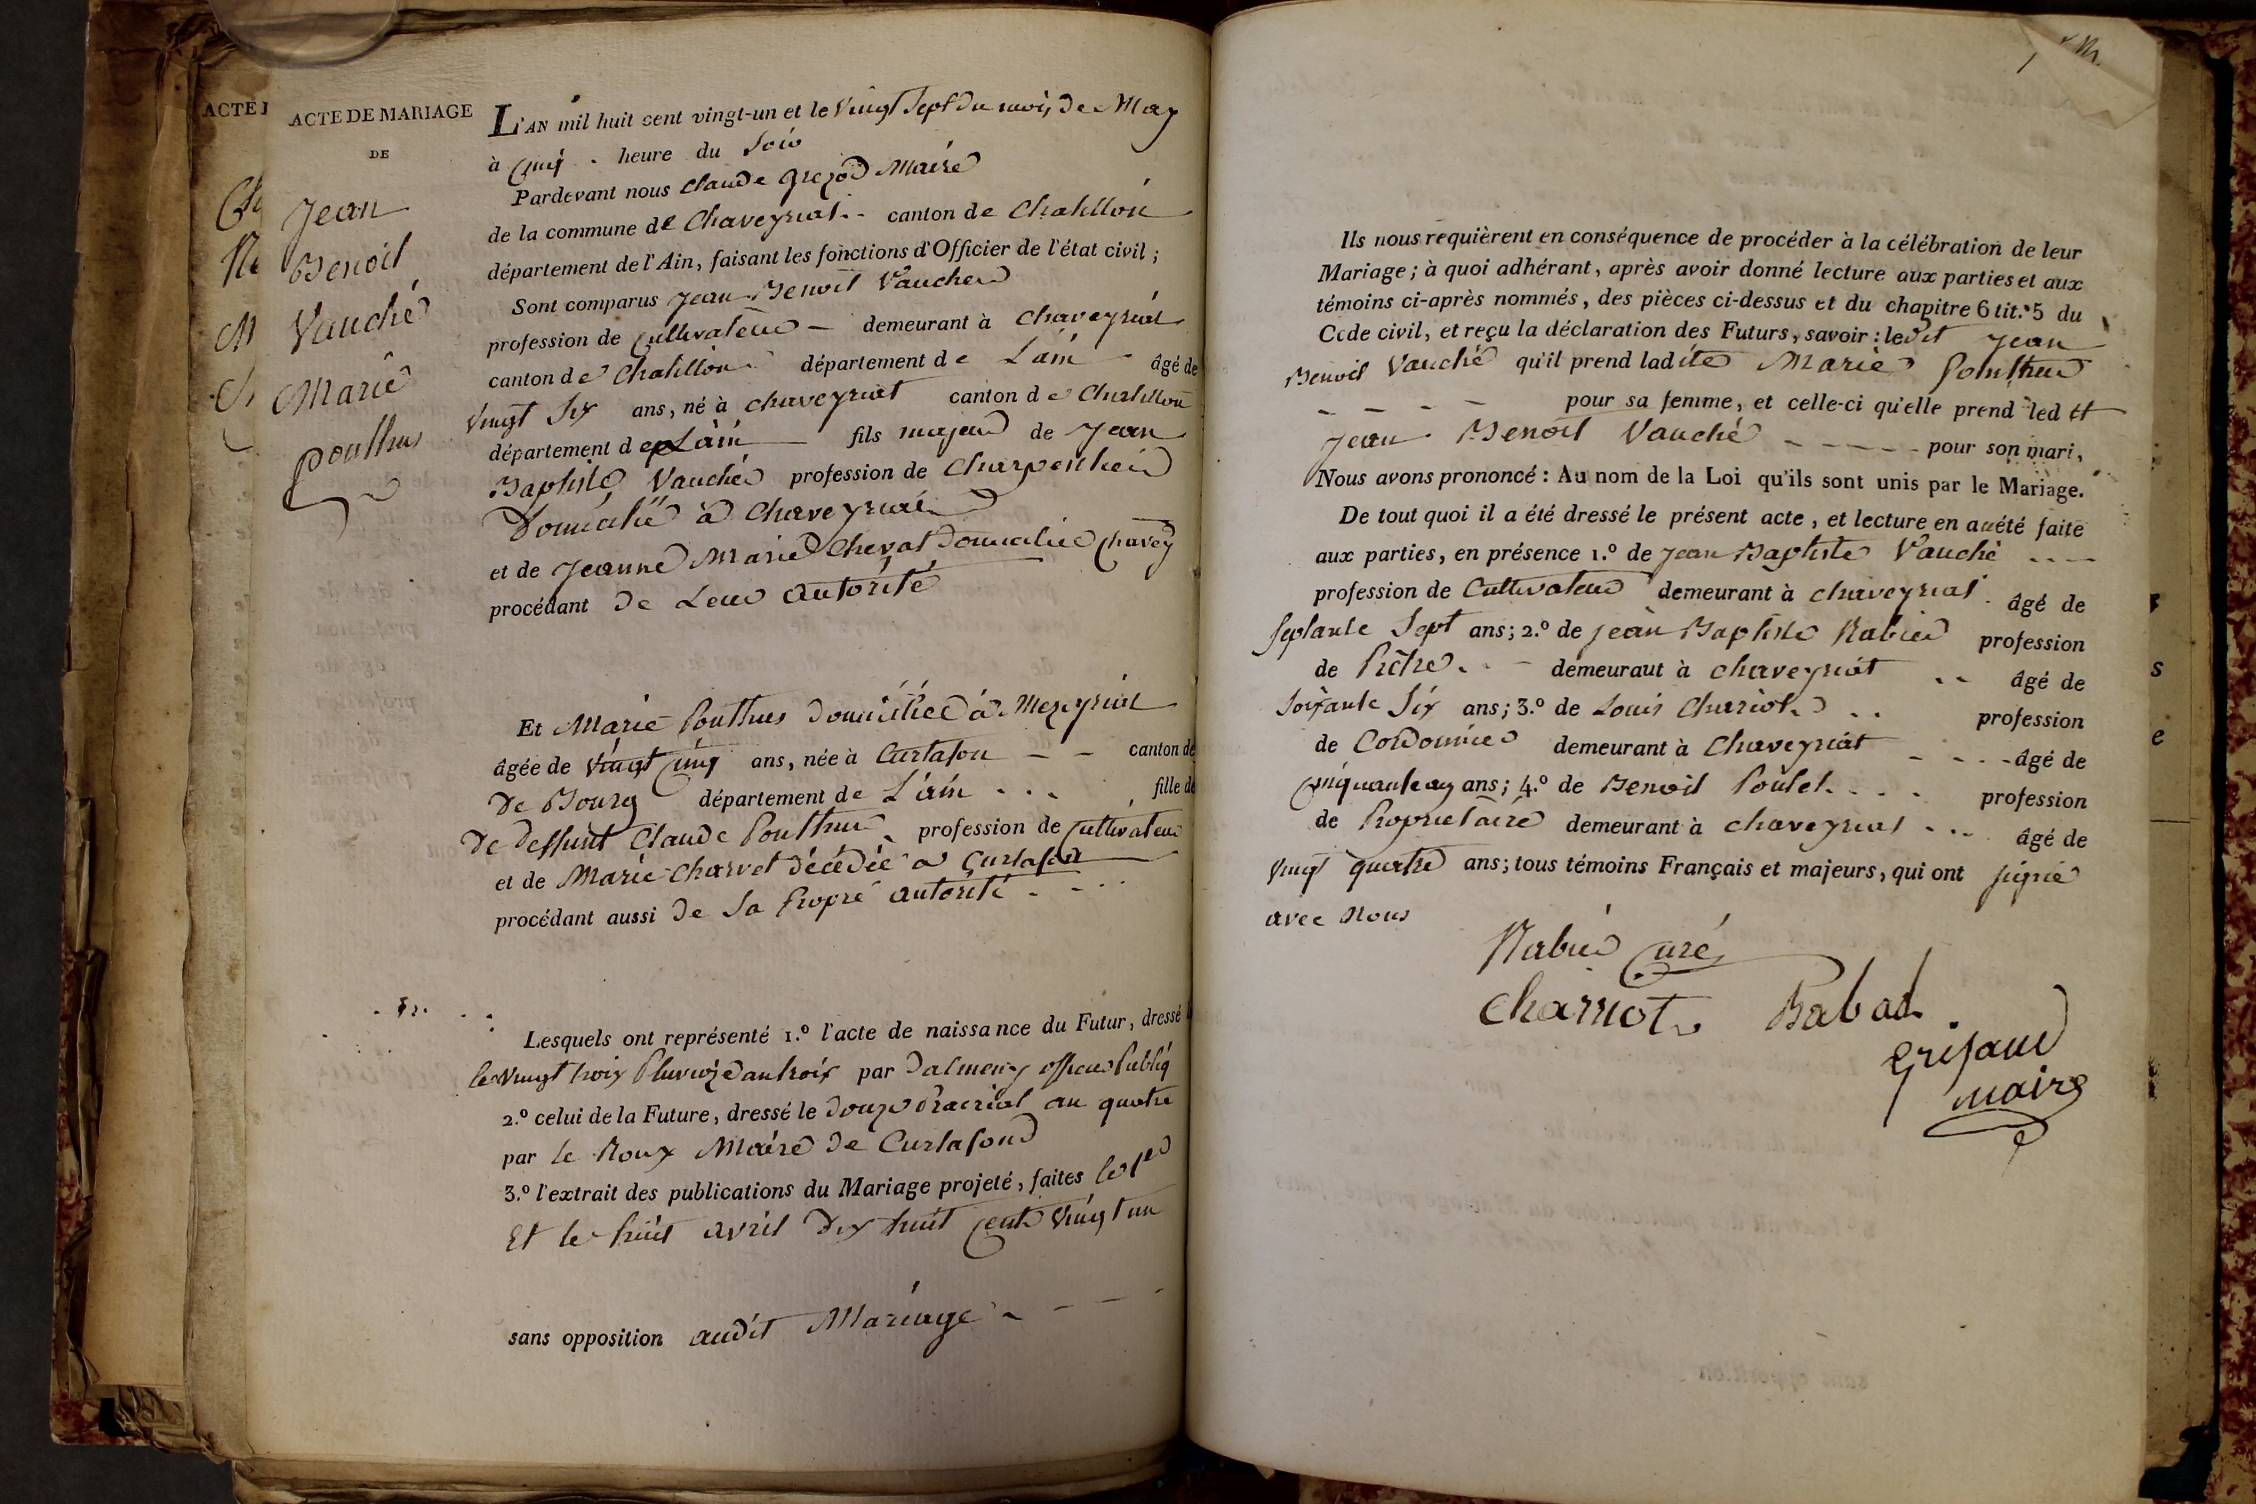 ACTE DE MARIAGE
DE
Jean
Benoit
Vauché
Marie
Pouthus
L'AN mil huit cent vingt-un et le Vingt Sept du mois de May
à Cinq heure du Soir
Pardevant nous Claude Maire
de la commune de Chaveyriat canton de Chatillon
département de l'Ain, faisant les fonctions d'Officier de l'état civil ;
Sont comparus Jean Benoit Vaucher
profession de Cultivateur demeurant à Chaveyriat
canton de Chatillon département de L'ain âgé de
Vingt Six ans, né à Chaveyriat canton de Chatillon
département de L'ain fils majeur de Jean
Baptiste Vauché profession de Charpentier
Domicilié à Chaveyriat
et de Jeanne Marie Chevat domicilié Chavey
procédant de Leur autorité
Et Marie Pouthus domiciliée à Mezeyriat
âgée de Vingt Cinq ans, née à Curtafon canton de
de Bourg département de L'ain fille de
De deffunt Claude Pouthus profession de Cultivateur
et de Marie Charvet décédée à Curtafon
procédant aussi de Sa Propre autorité
Lesquels ont représenté 1.º l'acte de naissance du Futur, dressé
le Vingt trois Pluvioze an trois par Dalmeny officier Publiq
2.º celui de la Future, dressé le douze Prairial an quatre
par le Roux Maire de Curtafond
3.º l'extrait des publications du Mariage projeté, faites le 1er
Et le huit avril Dix huit Cent Vingt un
sans opposition audit Mariage
Ils nous requièrent en conséquence de procéder à la célébration de leur
Mariage ; à quoi adhérant, après avoir donné lecture aux parties et aux
témoins ci-après nommés, des pièces ci-dessus et du chapitre 6 tit.º 5 du
Code civil, et reçu la déclaration des Futurs, savoir : ledit Jean
Benoit Vauché qu'il prend ladite Marie Pouthus
- - - - pour sa femme, et celle-ci qu'elle prend ledit
Jean Benoit Vauché - - - - - pour son mari,
Nous avons prononcé : Au nom de la Loi qu'ils sont unis par le Mariage.
De tout quoi il a été dressé le présent acte, et lecture en a été faite
aux parties, en présence 1.º de Jean Baptiste Vauché
profession de Cultivateur demeurant à Chaveyriat âgé de
Septante Sept ans ; 2.º de Jean Baptiste Rabier profession
de Prêtre demeurant à Chaveyriat âgé de
Soixante Six ans ; 3.º de Louis Charriot profession
de Cordonnier demeurant à Chaveyriat âgé de
Cinquante ans ; 4.º de Benoit Poulet profession
de Proprietaire demeurant à Chaveyriat âgé de
Vingt quatre ans ; tous témoins Français et majeurs, qui ont signé
avec Nous
Rabier Curé
Charriot Rabad
maire